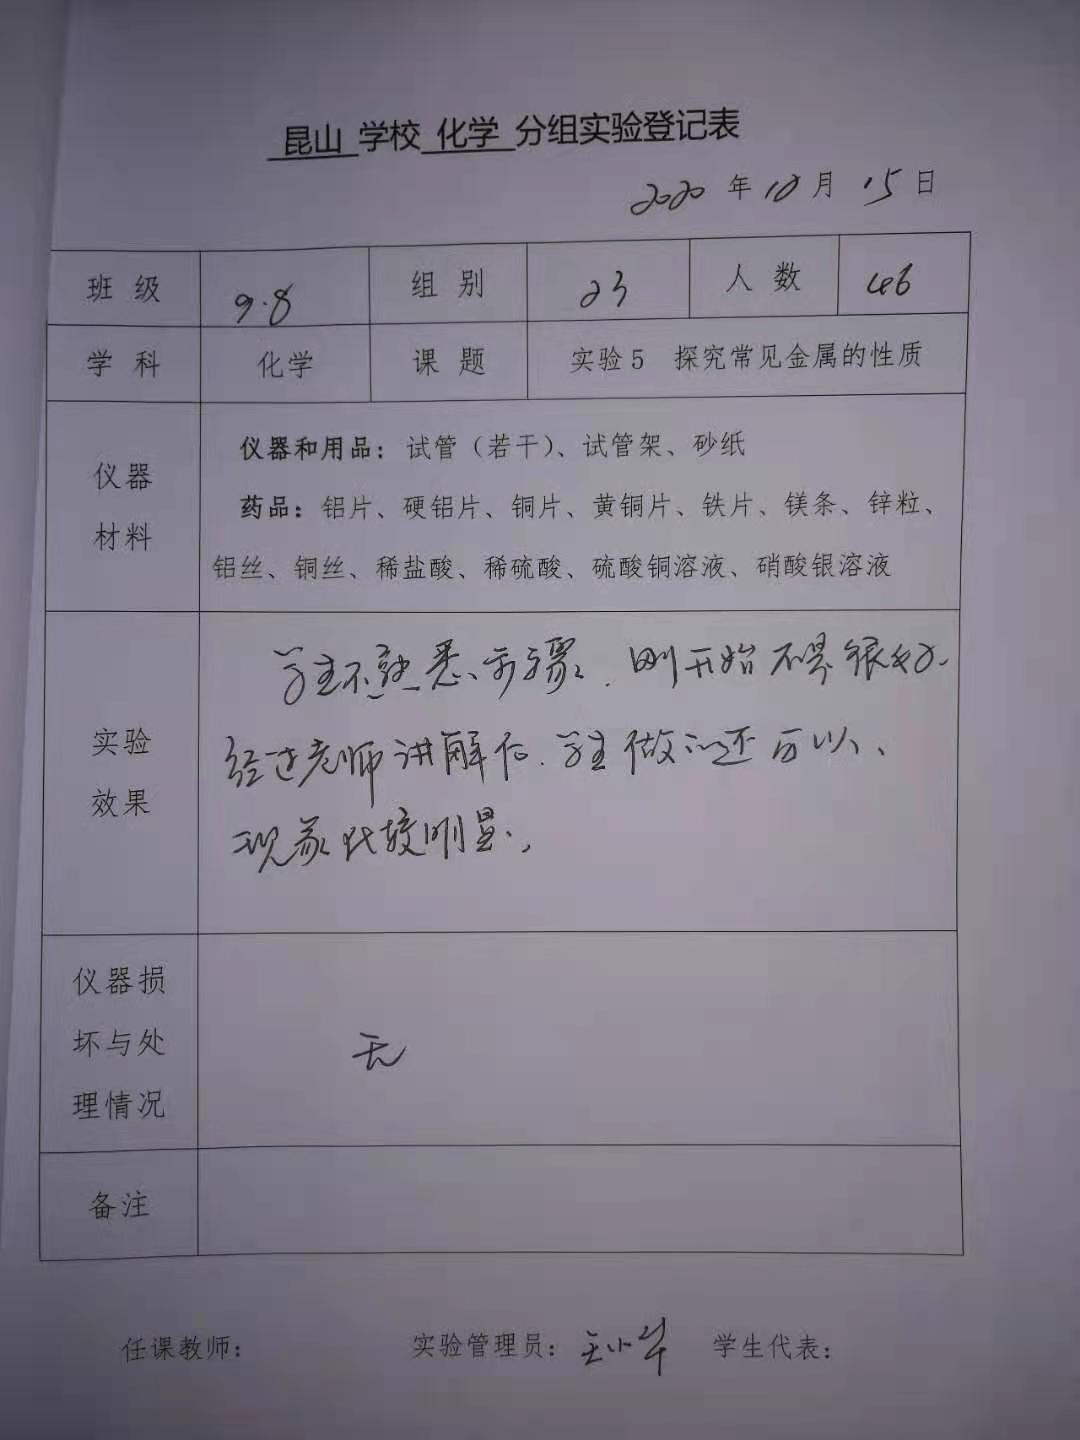 昆山 学校 化学 分组实验登记表
2020 年 12 月 15 日
班 级 9.8 组 别 23 人 数 46
学 科 化学 课 题 实验 5 探究常见金属的性质
仪器
材料
仪器和用品：试管（若干）、试管架、砂纸
药品：铝片、硬铝片、铜片、黄铜片、铁片、镁条、锌粒、
铝丝、铜丝、稀盐酸、稀硫酸、硫酸铜溶液、硝酸银溶液
实验
效果
学生不熟悉步骤，刚开始不是很好，
经过老师讲解后，学生做的还可以、
现象比较明显，
仪器损
坏与处
理情况
无
备注
任课教师： 实验管理员：王小华 学生代表：